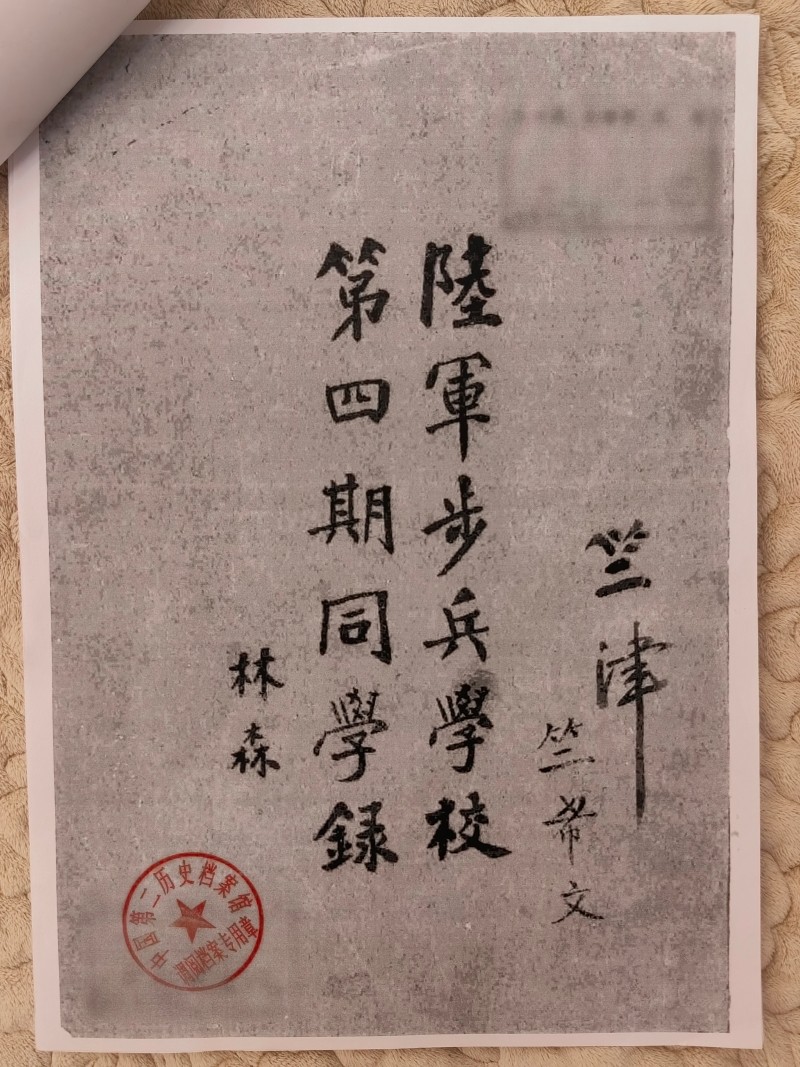 竺津
竺希文
陸軍步兵學校
第四期同學録
林森
中國第二历史档案馆
民国档案专用章